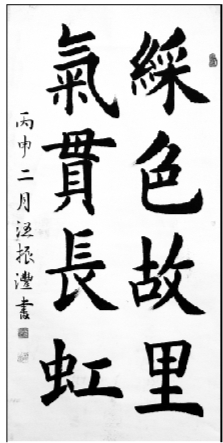 綵色故里
氣貫長虹
丙申二月汪振澧書